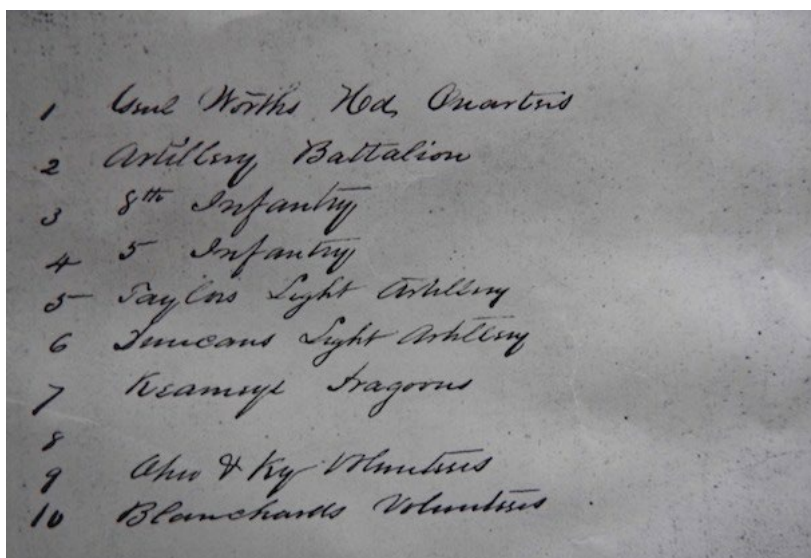 1 Genl Worths Hd, Quarters
2 Artillery Battalion
3 8th Infantry
4 5 Infantry
5 Taylors Light Artillery
6 Duncans Light Artillery
7 Dragoons
8
9 Ohio & Ky Volunteers
10 Blanchards Volunteers